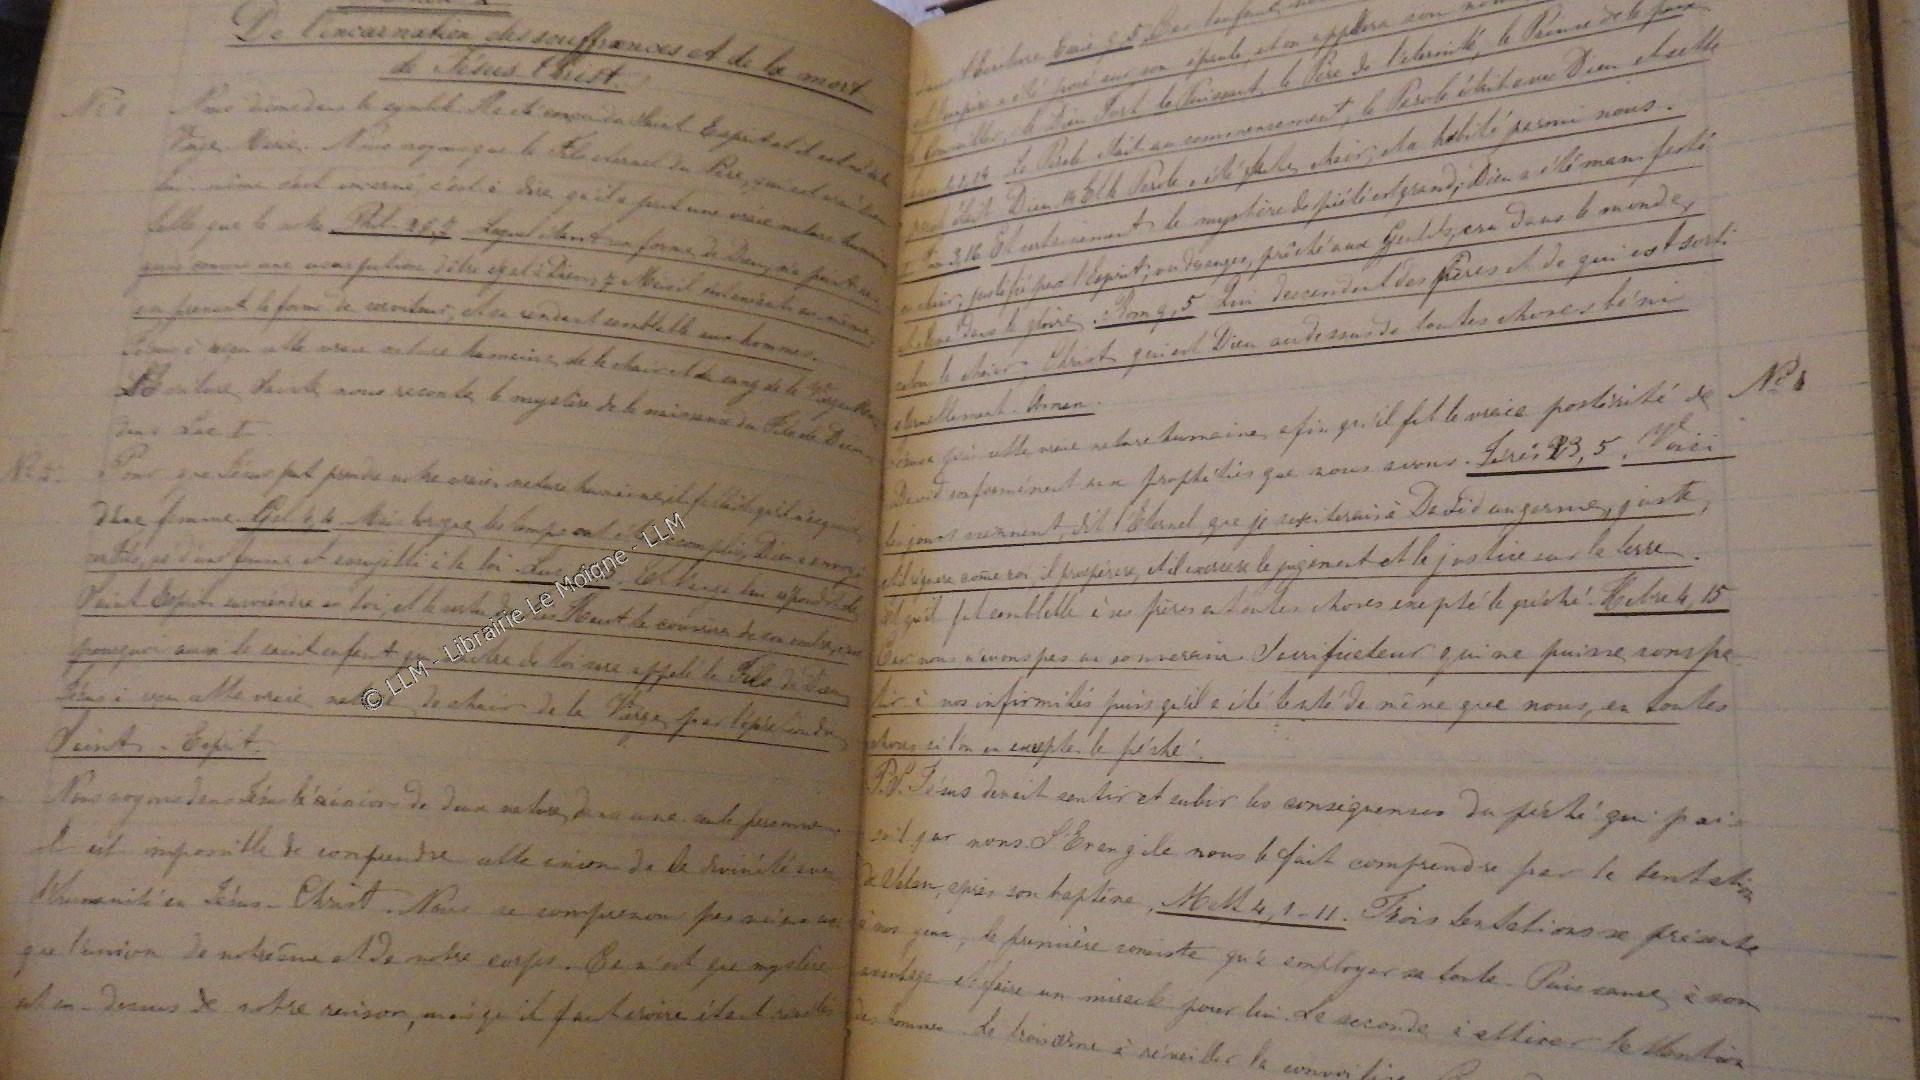 De l'incarnation des souffrances et de la mort
de Jésus Christ.
No 1 Nous disons dans le symbole Il a été conçu du Saint Esprit et il est né de la
Vierge Marie. Nous croyons que le Fils éternel du Père, qui est vrai Dieu
lui-même s'est incarné, c'est à dire, qu'il a pris une vraie nature humaine
telle que la notre Phil. 2 6,7 Lequel étant en forme de Dieu, n'a point
comme une usurpation d'être égal à Dieu, 7 Mais il s'est anéanti soi-même,
en prenant la forme de serviteur, et se rendant semblable aux hommes.
Jésus a reçu cette vraie nature humaine, de la chair et du sang de la Vierge Marie
L'Ecriture Sainte nous raconte le mystère de la naissance du Fils de Dieu
dans Luc I.
No 2. Pour que Jésus put prendre notre vraie nature humaine, il fallait qu'il naquit
d'une femme. Gal 4,4 Mais lorsque les temps ont été accomplis, Dieu a envoyé
son Fils, né d'une femme et assujetti à la loi Luc L'Ange lui répondit le
Saint Esprit surviendra en toi, et la vertu du Très Haut te couvrira de son ombre, c'est
pourquoi aussi le saint enfant qui naîtra de toi sera appelé le Fils de Dieu
Jésus a reçu cette vraie nature de chair de la Vierge par l'opération du
Saint-Esprit.
Nous voyons dans Jésus la réunion de deux natures, dans une seule personne
Il est impossible de comprendre cette union de la divinité avec
l'humanité en Jésus-Christ. Nous ne comprenons pas mieux
que l'union de notre âme et de notre corps. Ce n'est que mystère
est au-dessus de notre raison, mais qu'il faut croire étant révélés
l'Ecriture Esaïe 9,5 Car l'enfant
l'empire a été posé sur son épaule, et on appellera son nom
Conseiller, le Dieu Fort le Puissant, le Père de l'éternité, le Prince de la paix
Jean 1,1,14 La Parole était au commencement, la Parole était avec Dieu et cette
parole était Dieu 14 Et la Parole a été faite chair, et a habité parmi nous.
I Tim 3,16 Et certainement le mystère de piété est grand, Dieu a été manifesté
en chair, justifié par l'Esprit, vu des anges, prêché aux Gentils, cru dans le monde,
et élevé dans la gloire. Rom 9,5 Lui descendent des Pères et de qui est sorti
selon la chair, Christ qui est Dieu au dessus de toutes choses béni
éternellement. Amen.
Jésus prit cette vraie nature humaine, afin qu'il fut la vraie postérité de No
David conformément aux prophéties que nous avons. Jéré 23,5. Voici
les jours viennent, dit l'Eternel, que je susciterai à David un germe, juste,
et il règnera come roi, il prospérera, et il exercera le jugement et la justice sur la terre.
Et qu'il fut semblable à ses frères en toutes choses excepté le péché. Hebre 4,15
Car nous n'avons pas un souverain Sacrificateur qui ne puisse compa-
tir à nos infirmités puis qu'il a été tenté de même que nous, en toutes
choses si l'on en excepte le péché.
P.S. Jésus devait sentir et subir les conséquences du péché qui
par nous. L'Evangile nous le fait comprendre par la tentation
de Satan, après son baptême, Matt 4,1-11. Trois tentations se présente
à nos yeux, la première consiste qu'à employer sa toute-Puissance, à son
avantage et faire un miracle pour lui. La seconde à attirer l'attention
des hommes. La troisième à réveiller la
© LLM - Librairie Le Moigne - LLM